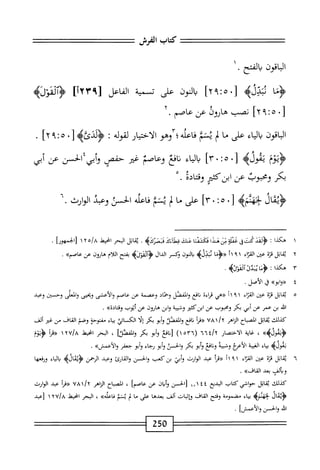 كتاب الفرش
الباقون بالفتح .١
﴿مَا نُبَدِّلُ﴾ [٢٩:٥٠] بالنون على تسمية الفاعل [٢٣٩أ] ﴿ٱلْقَوْلَ﴾
[٢٩:٥٠] نصب هارونُ عن عاصم .٢
الباقون بالياء على ما لم يُسَمَّ فاعلُه٣ وهو الاختيار لقوله : ﴿لَدَىَّ﴾ [٢٩:٥٠] .
﴿يَوْمَ يَقُولُ﴾ [٣٠:٥٠] بالياء نافعٌ وعاصمٌ غير حفصٍ وأبي٤ الحسن عن أبي
بكر ومحبوبٌ عن ابن كثيرٍ وقتادةُ .٥
﴿يُقَالُ لِجَهَنَّمَ﴾ [٣٠:٥٠] على ما لم يُسَمَّ فاعلُه الحسنُ وعبدُ الوارث .٦
١ هكذا : ﴿لَقَدْ كُنتَ فِى غَفْلَةٍ مِّنْ هَـٰذَا فَكَشَفْنَا عَنكَ غِطَآءَكَ فَبَصَرُكَ﴾ . يُقابَل البحر المحيط ١٢٥/٨ [الجمهور] .
٢ يُقابَل قرّة عين القرّاء ١٩١أ «﴿مَا نُبَدِّلُ﴾ بالنون وكسر الدال ﴿ٱلْقَوْلَ﴾ بفتح اللام هارون عن عاصم» .
٣ هكذا : ﴿مَا يُبَدَّلُ ٱلْقَوْلُ﴾ .
٤ «وابو» في الأصل .
٥ يُقابَل قرّة عين القرّاء ١٩١أ «هي قراءة نافع والمفضّل وحمّاد وعصمة عن عاصم والأعشى ويحيى والمعلّى وحسين وعبد
الله بن عمر عن أبي بكر ومحبوب عن ابن كثير وشيبة وابن هارون عن أيّوب وقتادة» .
كذلك يُقابَل المصباح الزاهر ٧٨١/٢ «قرأ نافع والمفضّل وأبو بكر إلّا الكسائيّ بياء مفتوحة وضمّ القاف من غير ألف
﴿يَقُولُ﴾» ، غاية الاختصار ٦٦٤/٢ (١٥٣٦) [نافع وأبو بكر والمفضّل] ، البحر المحيط ١٢٧/٨ «قرأ ﴿يَوْمَ
يَقُولُ﴾ بياء الغيبة الأعرج وشيبة ونافع وأبو بكر والحسنُ وأبو رجاء وأبو جعفر والأعمش» .
٦ يُقابَل قرّة عين القرّاء ١٩١أ «قرأ عبد الوارث وأبيّ بن كعب والحسن والقارئ وعبد الرحمن ﴿يُقَالُ﴾ بالياء ورفعها
وبألفٍ بعد القاف» .
كذلك يُقابَل حواشي كتاب البديع ١٤٤ ، [الحسن وأبان عن عاصم] ، المصباح الزاهر ٧٨١/٢ «قرأ عبد الوارث
﴿يُقَالُ لِجَهَنَّمَ﴾ بياء مضمومة وفتح القاف وإثبات ألف بعدها على ما لم يُسَمَّ فاعلُه» ، البحر المحيط ١٢٧/٨ [عبد
الله والحسن والأعمش] .
250